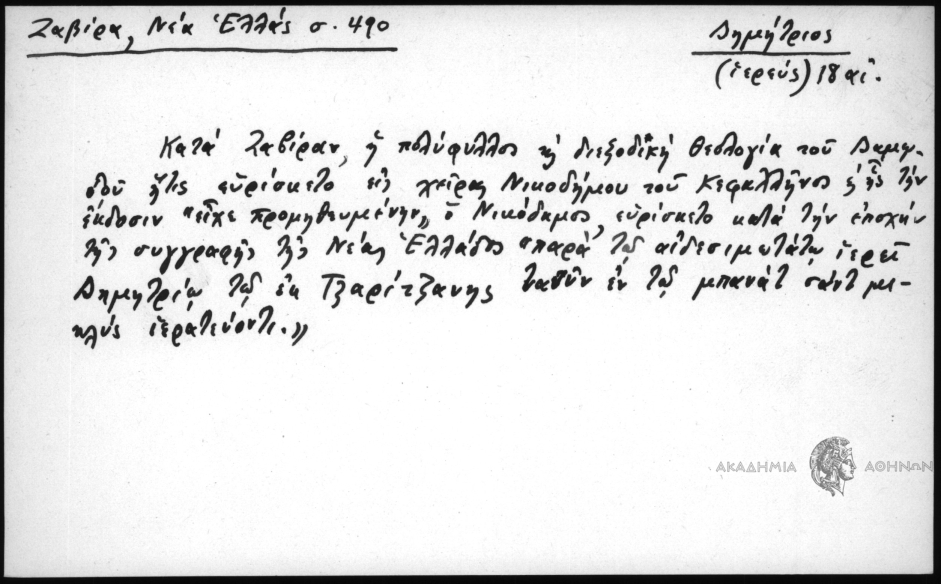 Ζαβίρα, Νέα Ἑλλάς σ. 490
Δημήτριος
(ἱερεύς) 18 αἰ.
Κατά Ζαβίραν, ἡ πολύφυλλος κὴ διεξοδική θεολογία τοῦ Δαμῳ-
δοῦ ἥτις εὑρίσκετο εἰς χεῖρας Νικοδήμου τοῦ Κεφαλλῆνος ἐξ ἧς τήν
ἔκδοσιν "εἶχε προμηθευμένην„ ὁ Νικόδημος, εὑρίσκετο κατά τήν ἐποχήν
τῆς συγγραφῆς τῆς Νέας Ἑλλάδος "παρά τῷ αἰδεσιμωτάτῳ ἱερεῖ
Δημητρίῳ τῷ ἐκ Τζαρίτζανης ταθῦν ἐν τῷ μπανάτ σάντ μι-
κλύς ἱερατεύοντι.„
ΑΚΑΔΗΜΙΑ ΑΘΗΝΩΝ